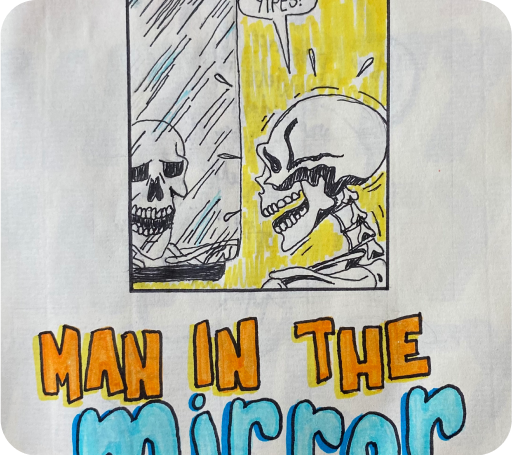 YIPES!
MAN IN THE
mirror